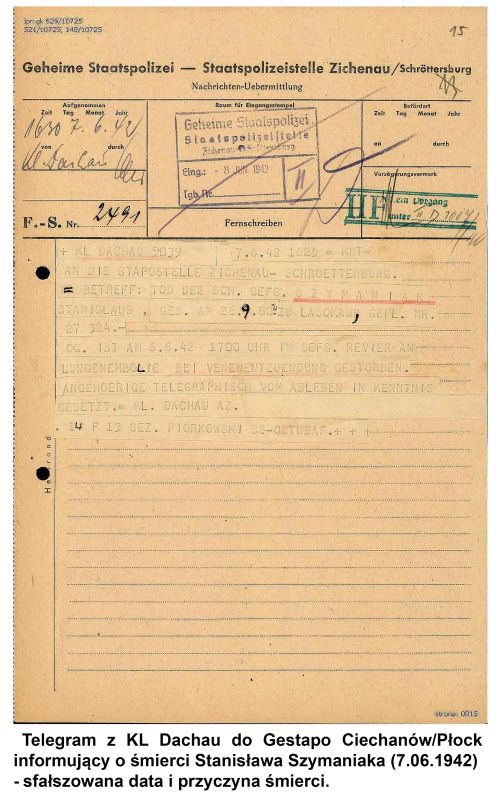 ipn gk 629/10725
521/10725, 148/10725
15
Geheime Staatspolizei — Staatspolizeistelle Zichenau/Schröttersburg
Nachrichten-Uebermittlung
Aufgenommen
Zeit Tag Monat Jahr
1630 7. 6. 42
von durch
Kl. Dachau
Raum für Eingangsstempel
Geheime Staatspolizei
Staatspolizeistelle
Zichenau Schröttersburg
Eing.: - 8 JUN. 1942
Tgb. Nr.
II
Befördert
Zeit Tag Monat Jahr
an durch
Verzögerungsvermerk
HF ein Vorgang
unter II D
F.-S. Nr. 2491
Fernschreiben
+ KL DACHAU 5039 7.6.42 1625 = KNT=
AN DIE STAPOSTELLE ZICHENAU- SCHROETTERBURG.
= BETREFF: TOD DES SCH. GEFG. S Z Y M A N I A K
STANISLAUS , GEB. AM 26.9.80 ZU LAJOKAWE, GEFL. NR.
27 324.-
OG. IST AM 6.6.42 1700 UHR IM GEFG. REVIER AN
LUNGENEMBOLIE BEI VENENENTZUENDUNG GESTORBEN.
ANGHOERIGE TELEGRAPHISCH VOM ABLEBEN IN KENNTNIS
GESETZT.= KL. DACHAU AZ.
. 14 F 13 GEZ. PIORKOWSKI SS-OSTUBAF.+ + +
strona: 0015
Telegram z KL Dachau do Gestapo Ciechanów/Płock
informujący o śmierci Stanisława Szymaniaka (7.06.1942)
- sfałszowana data i przyczyna śmierci.